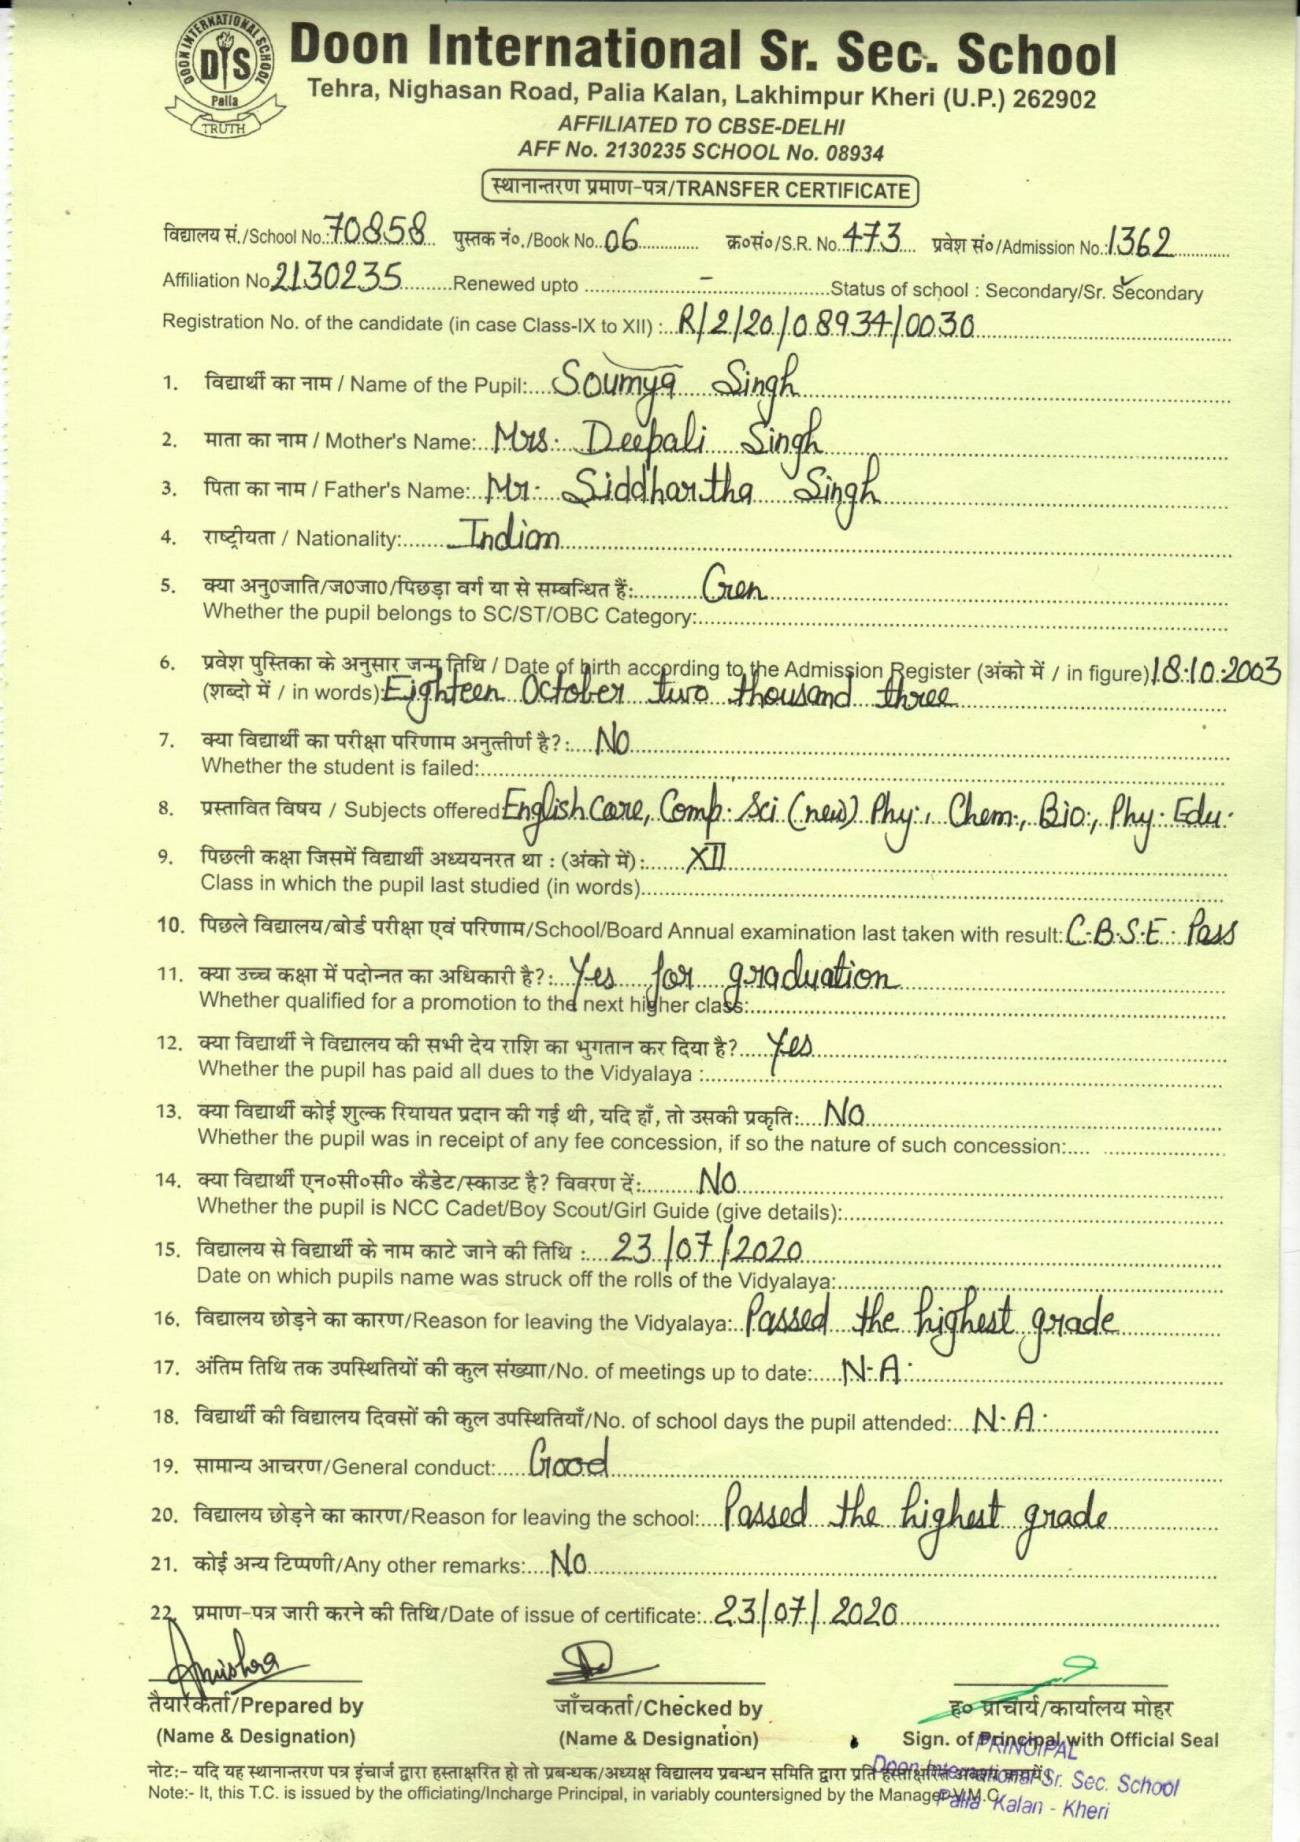 DOON INTERNATIONAL SCHOOL
DIS
Palia
TRUTH
Doon International Sr. Sec. School
Tehra, Nighasan Road, Palia Kalan, Lakhimpur Kheri (U.P.) 262902
AFFILIATED TO CBSE-DELHI
AFF No. 2130235 SCHOOL No. 08934
स्थानान्तरण प्रमाण-पत्र/TRANSFER CERTIFICATE
विद्यालय सं./School No. 70858 पुस्तक नं०./Book No. 06 क्र०सं०/S.R. No. 473 प्रवेश सं०/Admission No. 1362
Affiliation No 2130235 Renewed upto - Status of school : Secondary/Sr. Secondary
Registration No. of the candidate (in case Class-IX to XII) : R/2/20/08934/0030
1. विद्यार्थी का नाम / Name of the Pupil: Soumya Singh
2. माता का नाम / Mother's Name: Mrs. Deepali Singh
3. पिता का नाम / Father's Name: Mr. Siddhartha Singh
4. राष्ट्रीयता / Nationality: Indian
5. क्या अनु०जाति/ज०जा०/पिछड़ा वर्ग या से सम्बन्धित हैं: Gen
Whether the pupil belongs to SC/ST/OBC Category:
6. प्रवेश पुस्तिका के अनुसार जन्म तिथि / Date of birth according to the Admission Register (अंको में / in figure) 18.10.2003
(शब्दो में / in words): Eighteen October two thousand three
7. क्या विद्यार्थी का परीक्षा परिणाम अनुत्तीर्ण है?: No
Whether the student is failed:
8. प्रस्तावित विषय / Subjects offered: English Core, Comp. Sci (new) Phy., Chem., Bio., Phy. Edu.
9. पिछली कक्षा जिसमें विद्यार्थी अध्ययनरत था : (अंको में): XII
Class in which the pupil last studied (in words)
10. पिछले विद्यालय/बोर्ड परीक्षा एवं परिणाम/School/Board Annual examination last taken with result: C.B.S.E. Pass
11. क्या उच्च कक्षा में पदोन्नत का अधिकारी है?: Yes for graduation
Whether qualified for a promotion to the next higher class:
12. क्या विद्यार्थी ने विद्यालय की सभी देय राशि का भुगतान कर दिया है? Yes
Whether the pupil has paid all dues to the Vidyalaya :
13. क्या विद्यार्थी कोई शुल्क रियायत प्रदान की गई थी, यदि हाँ, तो उसकी प्रकृति: No
Whether the pupil was in receipt of any fee concession, if so the nature of such concession:
14. क्या विद्यार्थी एन०सी०सी० कैडेट/स्काउट है? विवरण दें: No
Whether the pupil is NCC Cadet/Boy Scout/Girl Guide (give details):
15. विद्यालय से विद्यार्थी के नाम काटे जाने की तिथि : 23/07/2020
Date on which pupils name was struck off the rolls of the Vidyalaya:
16. विद्यालय छोड़ने का कारण/Reason for leaving the Vidyalaya: Passed the highest grade
17. अंतिम तिथि तक उपस्थितियों की कुल संख्याा/No. of meetings up to date: N.A.
18. विद्यार्थी की विद्यालय दिवसों की कुल उपस्थितियाँ/No. of school days the pupil attended: N.A.
19. सामान्य आचरण/General conduct: Good
20. विद्यालय छोड़ने का कारण/Reason for leaving the school: Passed the highest grade
21. कोई अन्य टिप्पणी/Any other remarks: No
22. प्रमाण-पत्र जारी करने की तिथि/Date of issue of certificate: 23/07/2020
Anushra
तैयारकर्ता/Prepared by जाँचकर्ता/Checked by ह० प्राचार्य/कार्यालय मोहर
(Name & Designation) (Name & Designation) Sign. of Principal with Official Seal
PRINCIPAL
नोट:- यदि यह स्थानान्तरण पत्र इंचार्ज द्वारा हस्ताक्षरित हो तो प्रबन्धक/अध्यक्ष विद्यालय प्रबन्धन समिति द्वारा प्रति हस्ताक्षरित
Doon International Sr. Sec. School
Note:- It, this T.C. is issued by the officiating/Incharge Principal, in variably countersigned by the Manager V.M.C.
Palia Kalan - Kheri